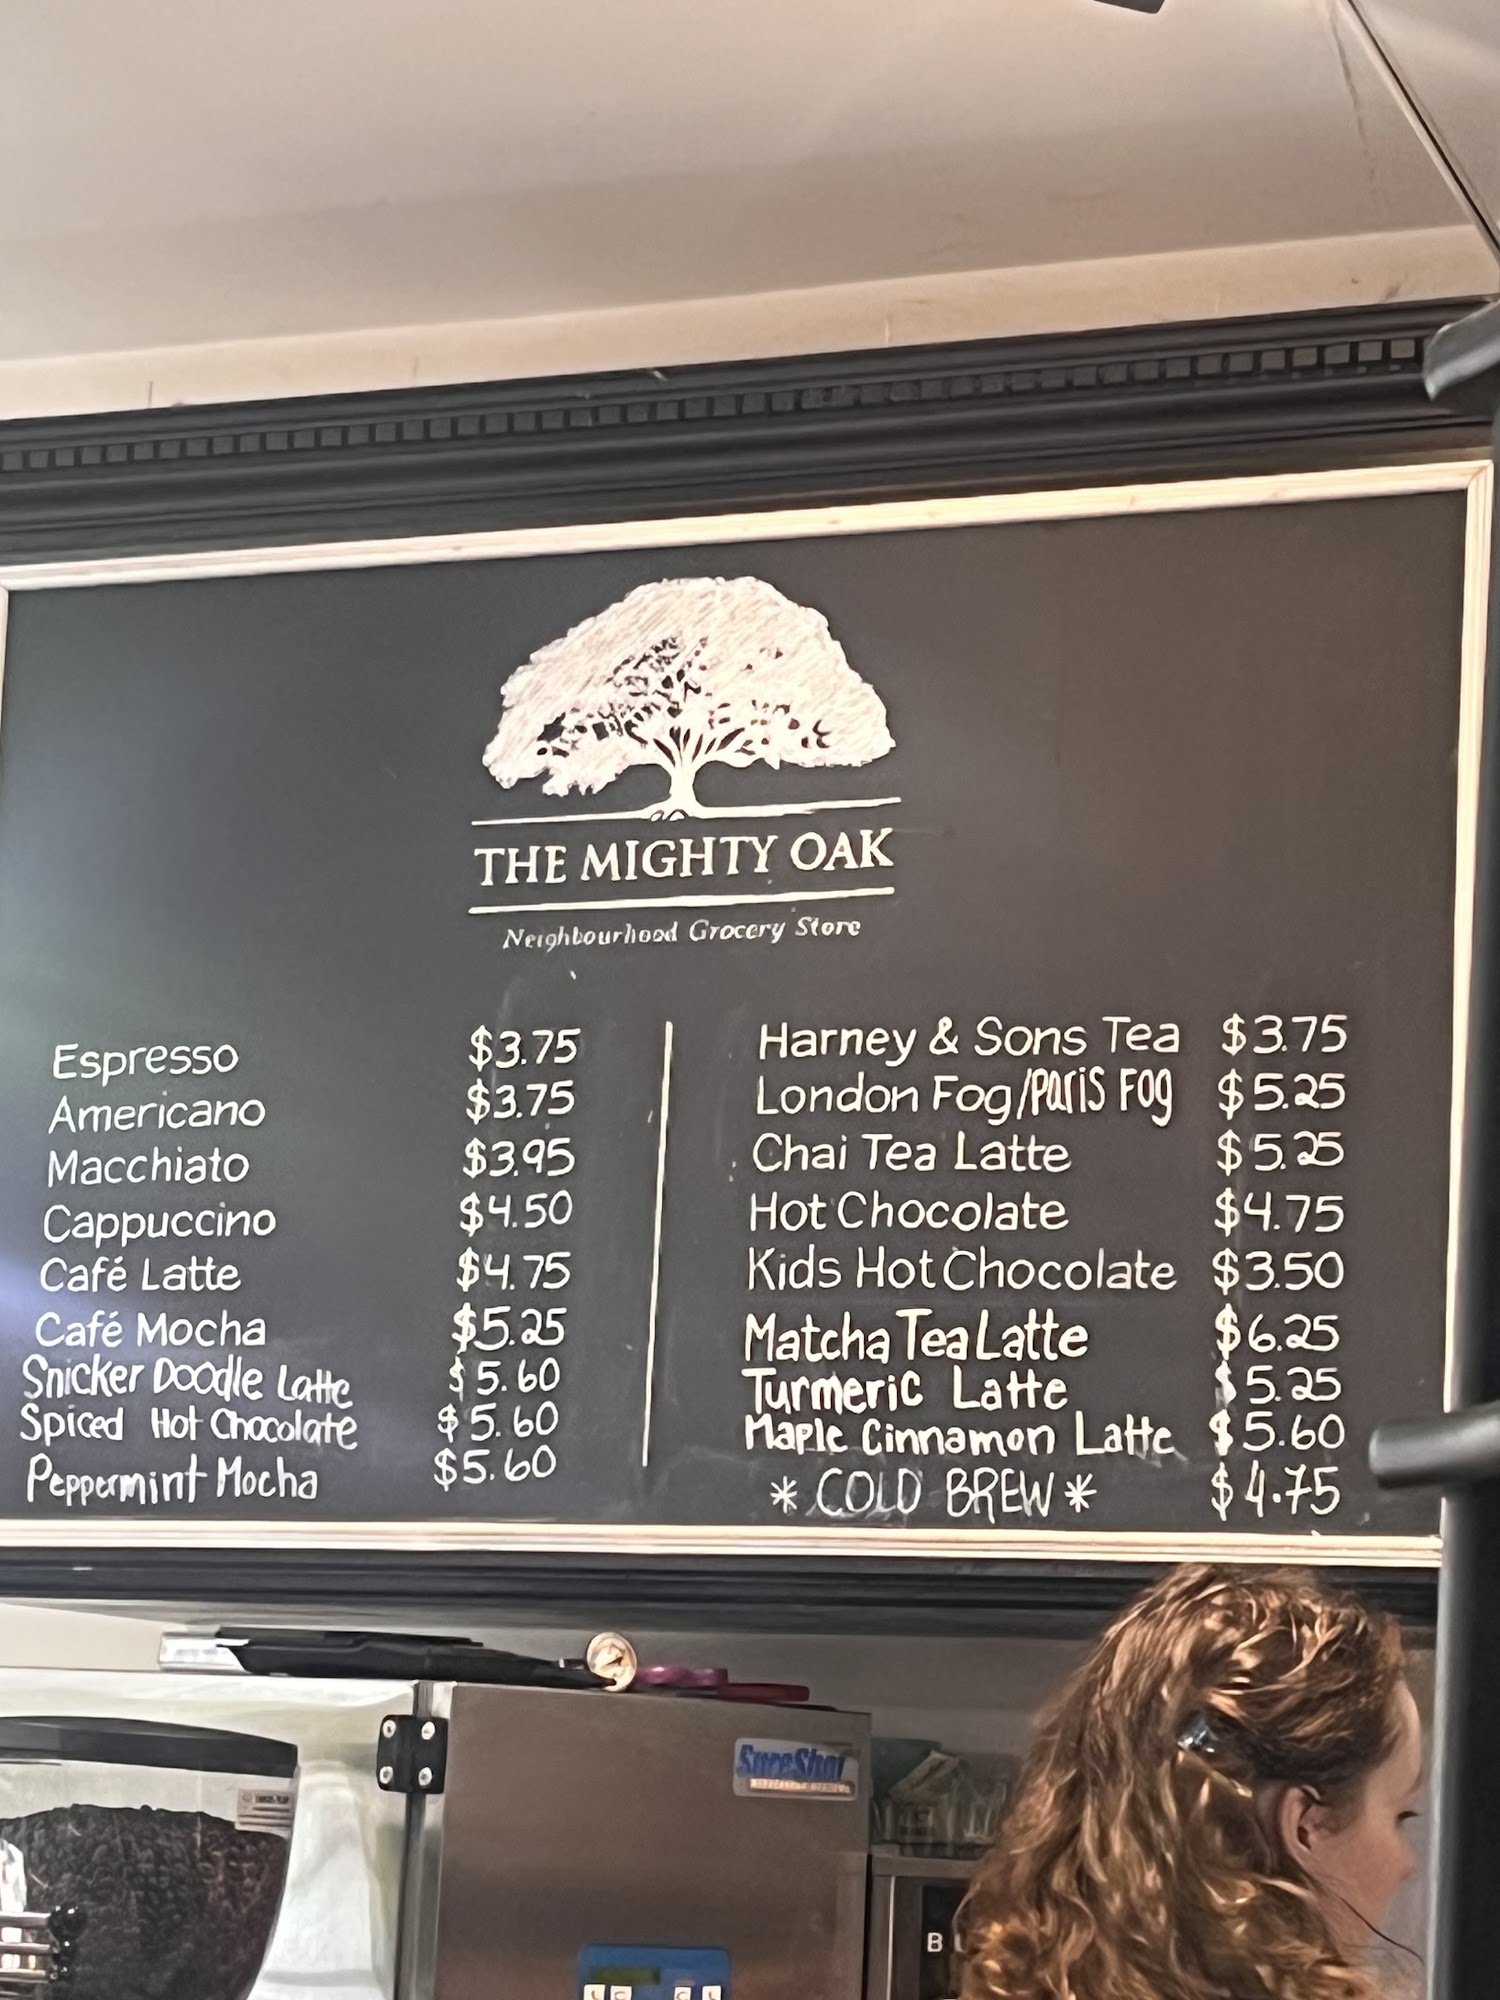 THE MIGHTY OAK
Neighbourhood Grocery Store
Espresso $3.75
Americano $3.75
Macchiato $3.95
Cappuccino $4.50
Café Latte $4.75
Café Mocha $5.25
Snicker Doodle Latte $5.60
Spiced Hot Chocolate $5.60
Peppermint Mocha $5.60
Harney & Sons Tea $3.75
London Fog/Paris Fog $5.25
Chai Tea Latte $5.25
Hot Chocolate $4.75
Kids Hot Chocolate $3.50
Matcha Tea Latte $6.25
Turmeric Latte $5.25
Maple Cinnamon Latte $5.60
* COLD BREW * $4.75
SureShot
B